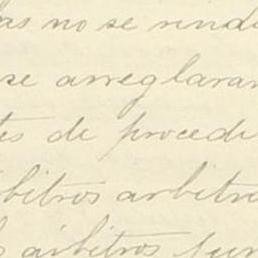 las no se rindi
se arreglaran
tes de procedi
rbitros arbitra
árbitros